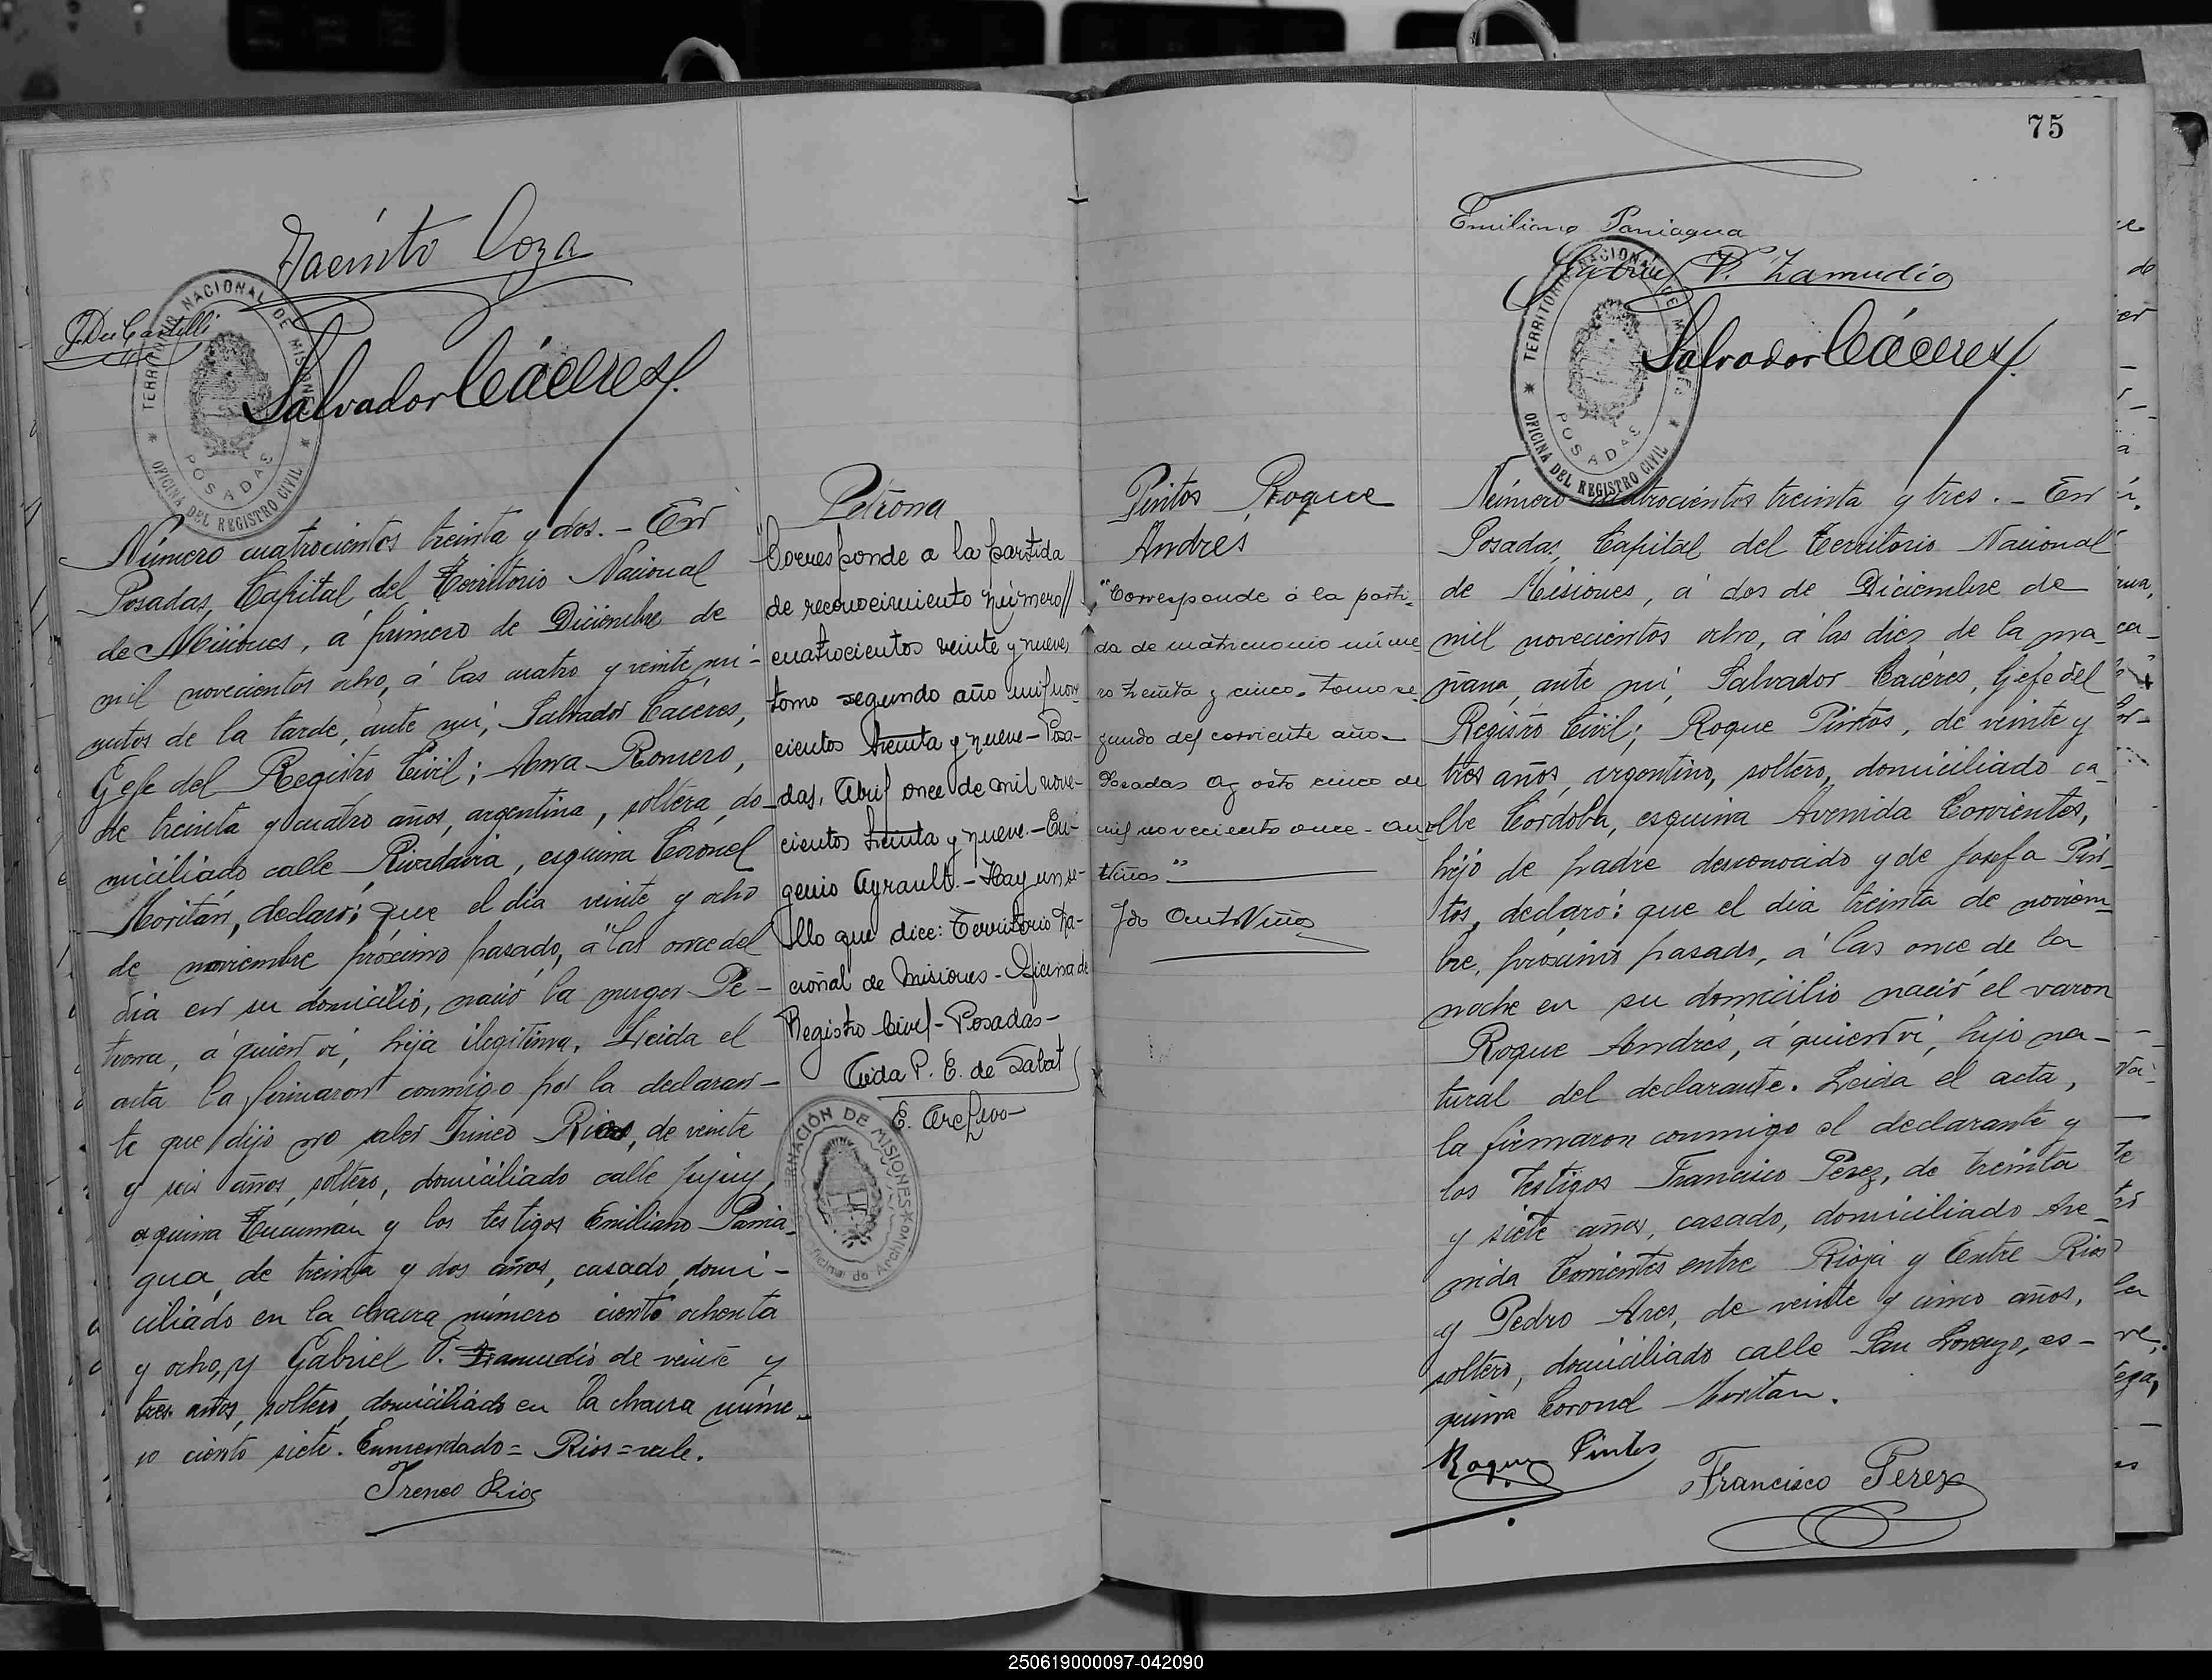 Jacinto Coza
J. Dei Castelli
TERRITORIO NACIONAL DE MISIONES
POSADAS
OFICINA DEL REGISTRO CIVIL
Salvador Cáceres
Número cuatrocientos treinta y dos. - En
Posadas, Capital del Territorio Nacional
de Misiones, á primero de Diciembre de
mil novecientos ocho, á las cuatro y veinte mi-
nutos de la tarde, ante mí, Salvador Cáceres,
Gefe del Registro Civil; Ana Romero,
de treinta y cuatro años, argentina, soltera, do-
miciliado calle Rivadavia, esquina Coronel
Moritán, declaró: que el día veinte y ocho
de noviembre próximo pasado, á las once del
día en su domicilio, nació la muger Pe-
trona, á quien ví, hija ilegítima. Leida el
acta la firmaron conmigo por la declaran-
te que dijo no saber Irineo Rios, de veinte
y seis años, soltero, domiciliado calle Jujuy,
esquina Tucumán y los testigos Emiliano Pania-
gua, de treinta y dos años, casado, domi-
ciliado en la chacra número ciento ochenta
y ocho, y Gabriel P. Zamudio de veinte y
tres años, soltero, domiciliado en la chacra núme-
ro ciento siete. Enmendado = Rios = vale.
Ireneo Rios
Petrona
"Corresponde a la partida
de reconocimiento número//
cuatrocientos veinte y nueve
tomo segundo año mil nove
cientos treinta y nueve - Posa-
das, Abril once de mil nove-
cientos treinta y nueve. - Eu-
genio Ayrault. - Hay un se-
llo que dice: Territorio Na-
cional de Misiones - Oficina de
Registro Civil - Posadas -
Aida P. E. de Sabat
E. Archivo
GOBERNACIÓN DE MISIONES
Oficina de Archivo
75
Emiliano Paniagua
Gabriel P. Zamudio
TERRITORIO NACIONAL DE MISIONES
POSADAS
OFICINA DEL REGISTRO CIVIL
Salvador Cáceres
Pintos Roque
Andrés
"Corresponde á la parti-
da de matrimonio núme
ro treinta y cinco. Tomo se
gundo del corriente año.
Posadas Agosto cinco de
mil novecientos once -
Niños"
Número cuatrocientos treinta y tres. - En
Posadas, Capital del Territorio Nacional
de Misiones, á dos de Diciembre de
mil novecientos ocho, á las diez de la ma-
ñana, ante mí, Salvador Cáceres, Gefe del
Registro Civil; Roque Pintos, de veinte y
tres años, argentino, soltero, domiciliado ca-
lle Córdoba, esquina Avenida Corrientes,
hijo de padre desconocido y de Josefa Pin-
tos, declaró: que el día treinta de noviem-
bre, próximo pasado, á las once de la
noche en su domicilio nació el varon
Roque Andrés, á quien ví, hijo na-
tural del declarante. Leida el acta,
la firmaron conmigo el declarante y
los testigos Francisco Perez, de treinta
y siete años, casado, domiciliado Ave-
nida Corrientes entre Rioja y Entre Rios
y Pedro Ares, de veinte y cinco años,
soltero, domiciliado calle San Lorenzo, es-
quina Coronel Moritan.
Roque Pintos
Francisco Perez
250619000097-042090